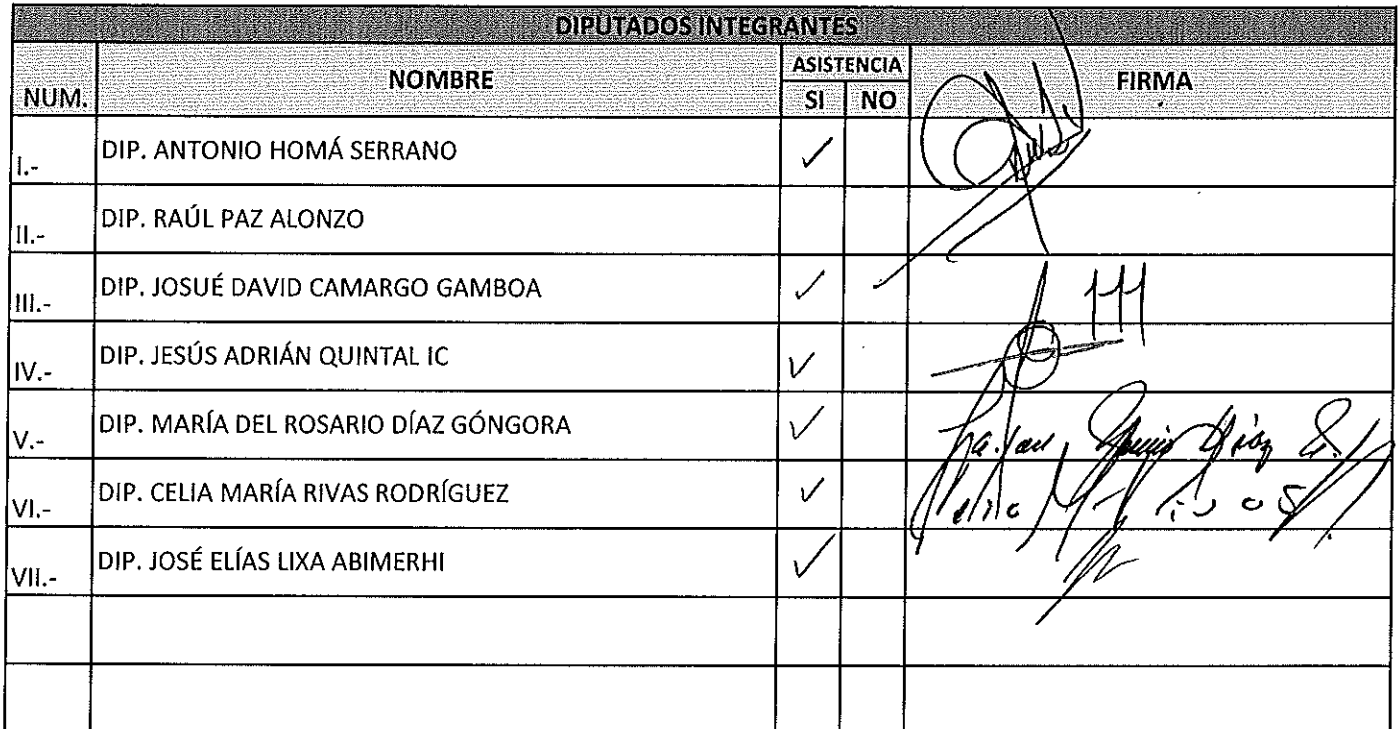 DIPUTADOS INTEGRANTES
NUM. NOMBRE ASISTENCIA FIRMA
SI NO
I.- DIP. ANTONIO HOMÁ SERRANO ✓
II.- DIP. RAÚL PAZ ALONZO
III.- DIP. JOSUÉ DAVID CAMARGO GAMBOA ✓
IV.- DIP. JESÚS ADRIÁN QUINTAL IC ✓
V.- DIP. MARÍA DEL ROSARIO DÍAZ GÓNGORA ✓
VI.- DIP. CELIA MARÍA RIVAS RODRÍGUEZ ✓
VII.- DIP. JOSÉ ELÍAS LIXA ABIMERHI ✓